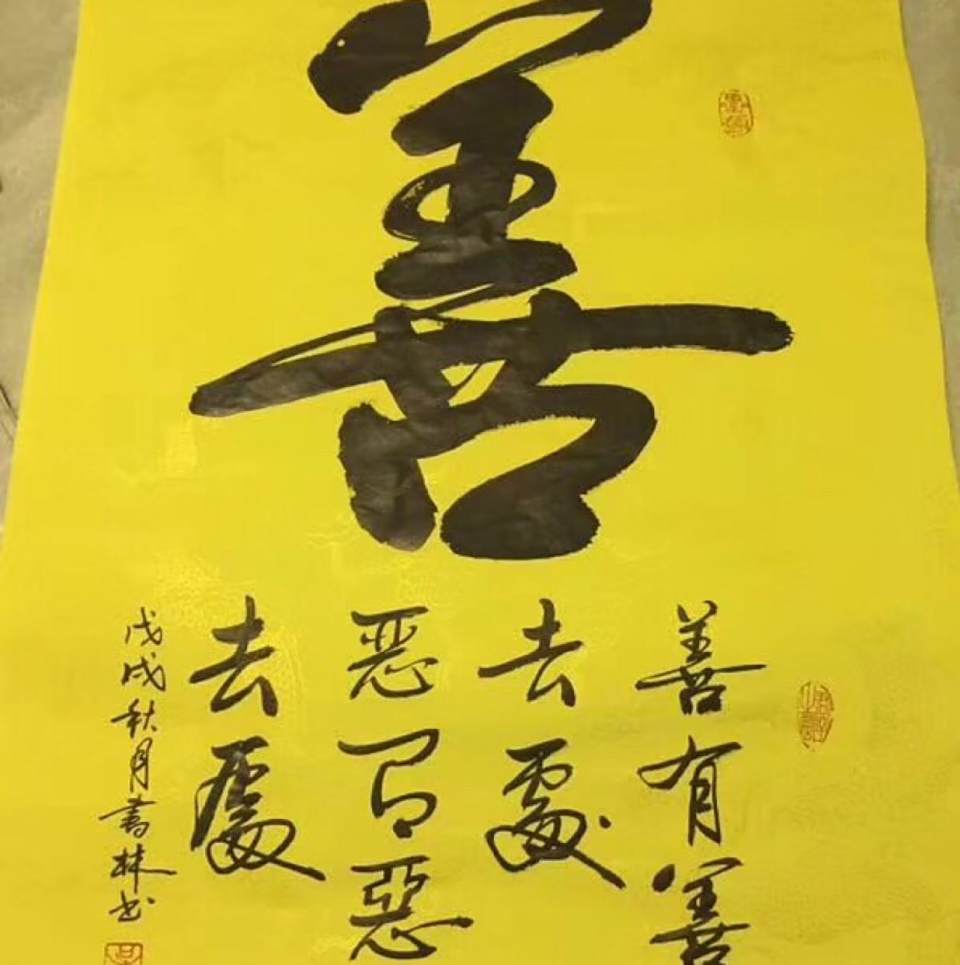 善
善有善
去處
恶有惡
去處
戊戌秋月書林书